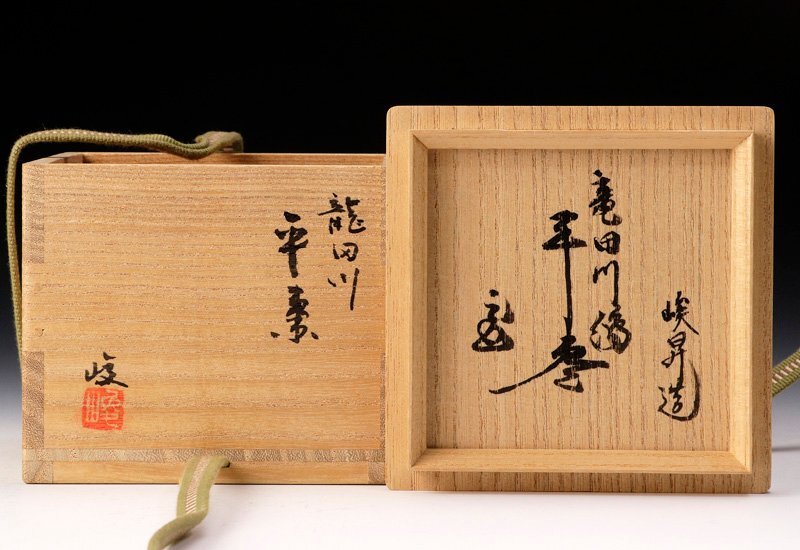 龍田川
平棗
峻
峻昇造
竜田川
平棗